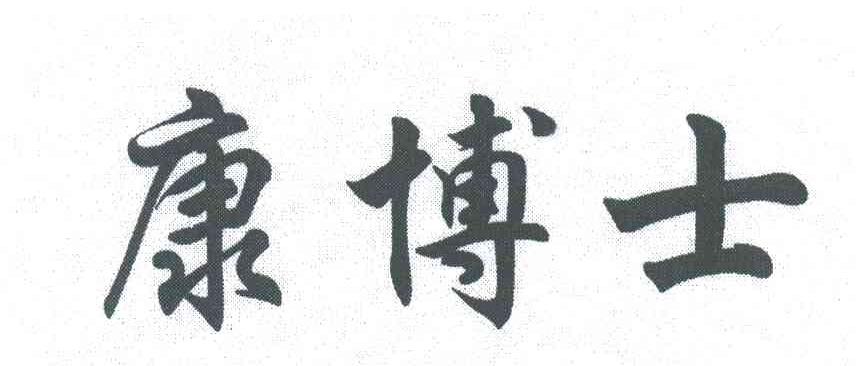 康博士